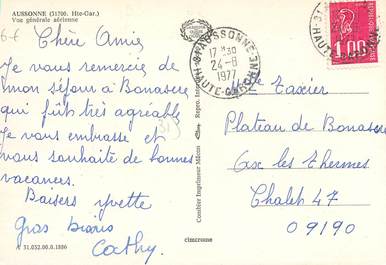 AUSSONNE (31700. Hte-Gar.)
Vue générale aérienne
Chère Amie
Je vous remercie de
mon séjour à Bonascre
qui fût très agréable
Je vous embrasse et
vous souhaite de bonnes
vacances.
Baisers yvette
gros bisous
Cathy.
A 31.032.00.0.1886
Combier Imprimeur Mâcon
cimcrome
31 AUSSONNE
17 H 30
24-8
1977
HAUTE-GARONNE
1.00
Plateau de Bonascre
Ax les Thermes
Chalet 47
09190